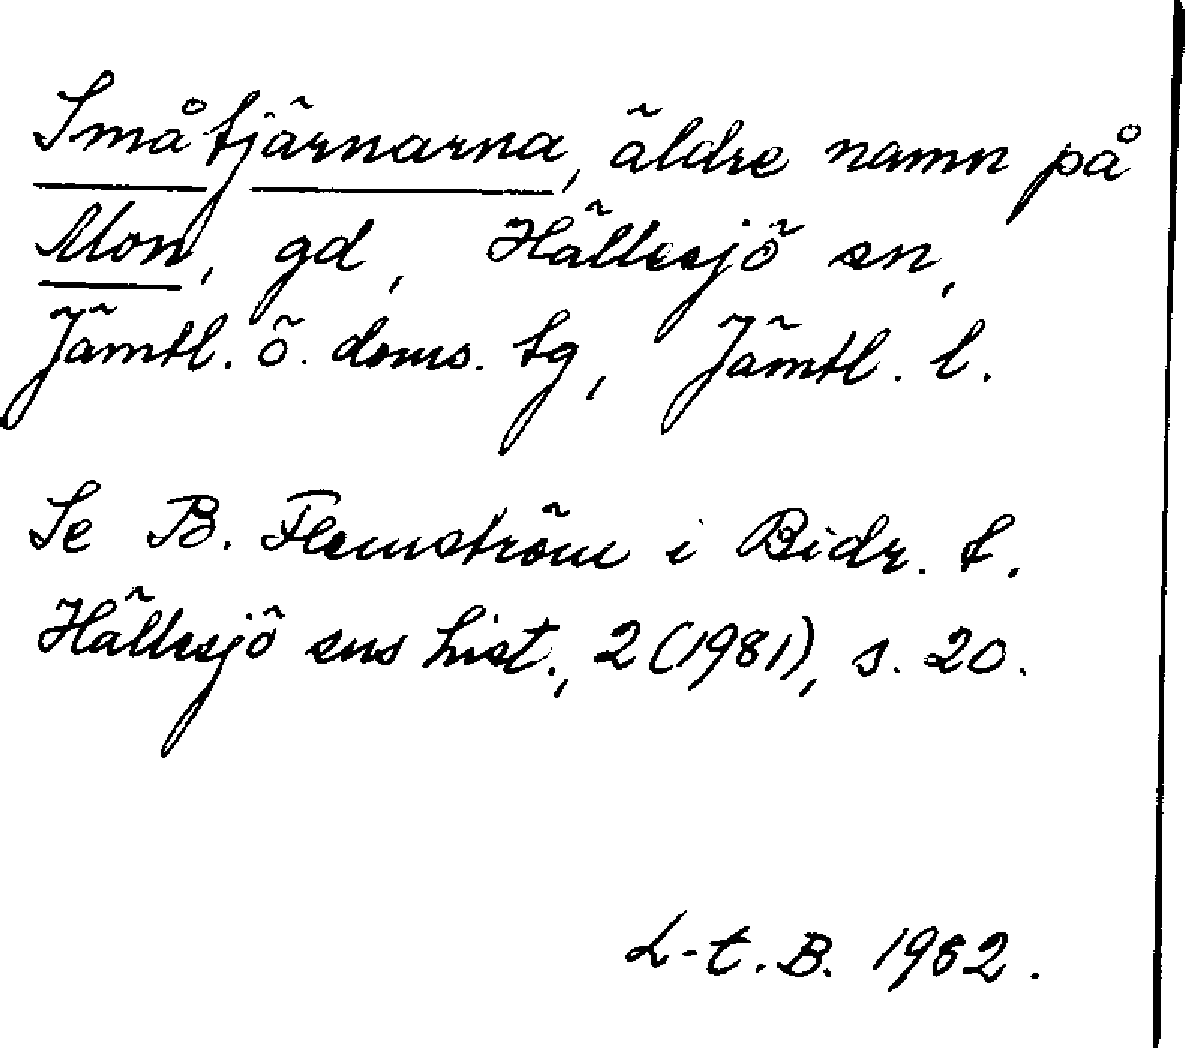 Småtjärnarna, äldre namn på
Mon, gd, Hällesjö sn,
Jämtl. ö. doms. tg, Jämtl. l.
Se B. Flemström i Bidr. t.
Hällesjö sns hist., 2 (1981), s. 20.
L-t. B. 1982.